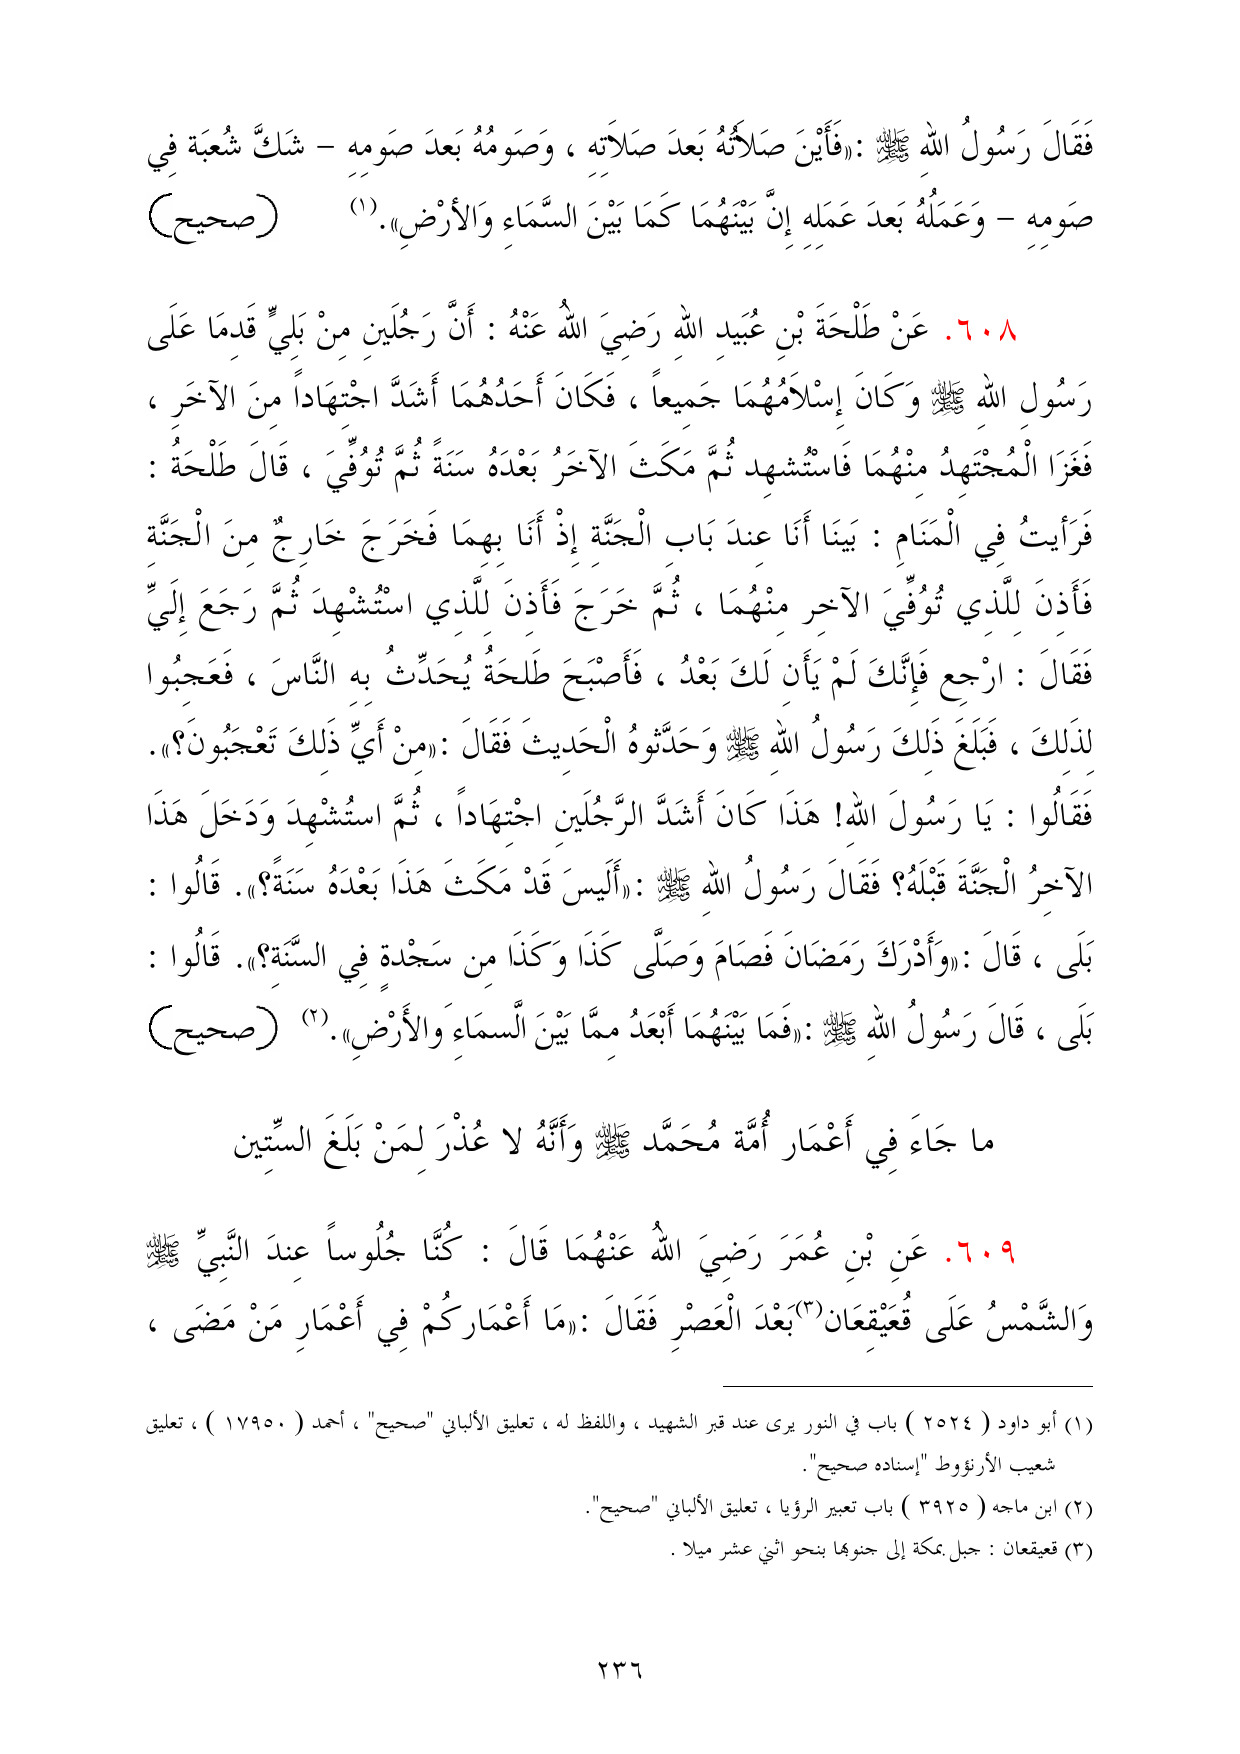 فَقَالَ رَسُولُ اللهِ ﷺ :«فَأَيْنَ صَلاَتُهُ بَعدَ صَلاَتِهِ ، وَصَومُهُ بَعدَ صَومِهِ – شَكَّ شُعبَة فِي
صَومِهِ – وَعَمَلُهُ بَعدَ عَمَلِهِ إِنَّ بَيْنَهُمَا كَمَا بَيْنَ السَّمَاءِ وَالأرْضِ».(١) (صحيح)
٦٠٨. عَنْ طَلْحَةَ بْنِ عُبَيدِ اللهِ رَضِيَ اللهُ عَنْهُ : أَنَّ رَجُلَينِ مِنْ بَلِيٍّ قَدِمَا عَلَى
رَسُولِ اللهِ ﷺ وَكَانَ إِسْلاَمُهُمَا جَمِيعاً ، فَكَانَ أَحَدُهُمَا أَشَدَّ اجْتِهَاداً مِنَ الآخَرِ ،
فَغَزَا الْمُجْتَهِدُ مِنْهُمَا فَاسْتُشهِد ثُمَّ مَكَثَ الآخَرُ بَعْدَهُ سَنَةً ثُمَّ تُوُفِّيَ ، قَالَ طَلْحَةُ :
فَرَأيتُ فِي الْمَنَامِ : بَينَا أَنَا عِندَ بَابِ الْجَنَّةِ إِذْ أَنَا بِهِمَا فَخَرَجَ خَارِجٌ مِنَ الْجَنَّةِ
فَأَذِنَ لِلَّذِي تُوُفِّيَ الآخِرِ مِنْهُمَا ، ثُمَّ خَرَجَ فَأَذِنَ لِلَّذِي اسْتُشْهِدَ ثُمَّ رَجَعَ إِلَيَّ
فَقَالَ : ارْجِعِ فَإِنَّكَ لَمْ يَأَنِ لَكَ بَعْدُ ، فَأَصْبَحَ طَلحَةُ يُحَدِّثُ بِهِ النَّاسَ ، فَعَجِبُوا
لِذَلِكَ ، فَبَلَغَ ذَلِكَ رَسُولُ اللهِ ﷺ وَحَدَّثوهُ الْحَدِيثَ فَقَالَ :«مِنْ أَيِّ ذَلِكَ تَعْجَبُونَ؟».
فَقَالُوا : يَا رَسُولَ اللهِ! هَذَا كَانَ أَشَدَّ الرَّجُلَينِ اجْتِهَاداً ، ثُمَّ استُشْهِدَ وَدَخَلَ هَذَا
الآخِرُ الْجَنَّةَ قَبْلَهُ؟ فَقَالَ رَسُولُ اللهِ ﷺ :«أَلَيسَ قَدْ مَكَثَ هَذَا بَعْدَهُ سَنَةً؟». قَالُوا :
بَلَى ، قَالَ :«وَأَدْرَكَ رَمَضَانَ فَصَامَ وَصَلَّى كَذَا وَكَذَا مِن سَجْدةٍ فِي السَّنَةِ؟». قَالُوا :
بَلَى ، قَالَ رَسُولُ اللهِ ﷺ :«فَمَا بَيْنَهُمَا أَبْعَدُ مِمَّا بَيْنَ الَّسمَاءَ والأَرْضِ».(٢) (صحيح)
ما جَاءَ فِي أَعْمَار أُمَّة مُحَمَّد ﷺ وَأَنَّهُ لا عُذْرَ لِمَنْ بَلَغَ السِّتِين
٦٠٩. عَنِ بْنِ عُمَرَ رَضِيَ اللهُ عَنْهُمَا قَالَ : كُنَّا جُلُوساً عِندَ النَّبِيِّ ﷺ
وَالشَّمْسُ عَلَى قُعَيْقِعَان(٣)بَعْدَ الْعَصْرِ فَقَالَ :«مَا أَعْمَاركُمْ فِي أَعْمَارِ مَنْ مَضَى ،
(١) أبو داود ( ٢٥٢٤ ) باب في النور يرى عند قبر الشهيد ، واللفظ له ، تعليق الألباني "صحيح" ، أحمد ( ١٧٩٥٠ ) ، تعليق
شعيب الأرنؤوط "إسناده صحيح".
(٢) ابن ماجه ( ٣٩٢٥ ) باب تعبير الرؤيا ، تعليق الألباني "صحيح".
(٣) قعيقعان : جبل بمكة إلى جنوبها بنحو اثني عشر ميلا .
٢٣٦